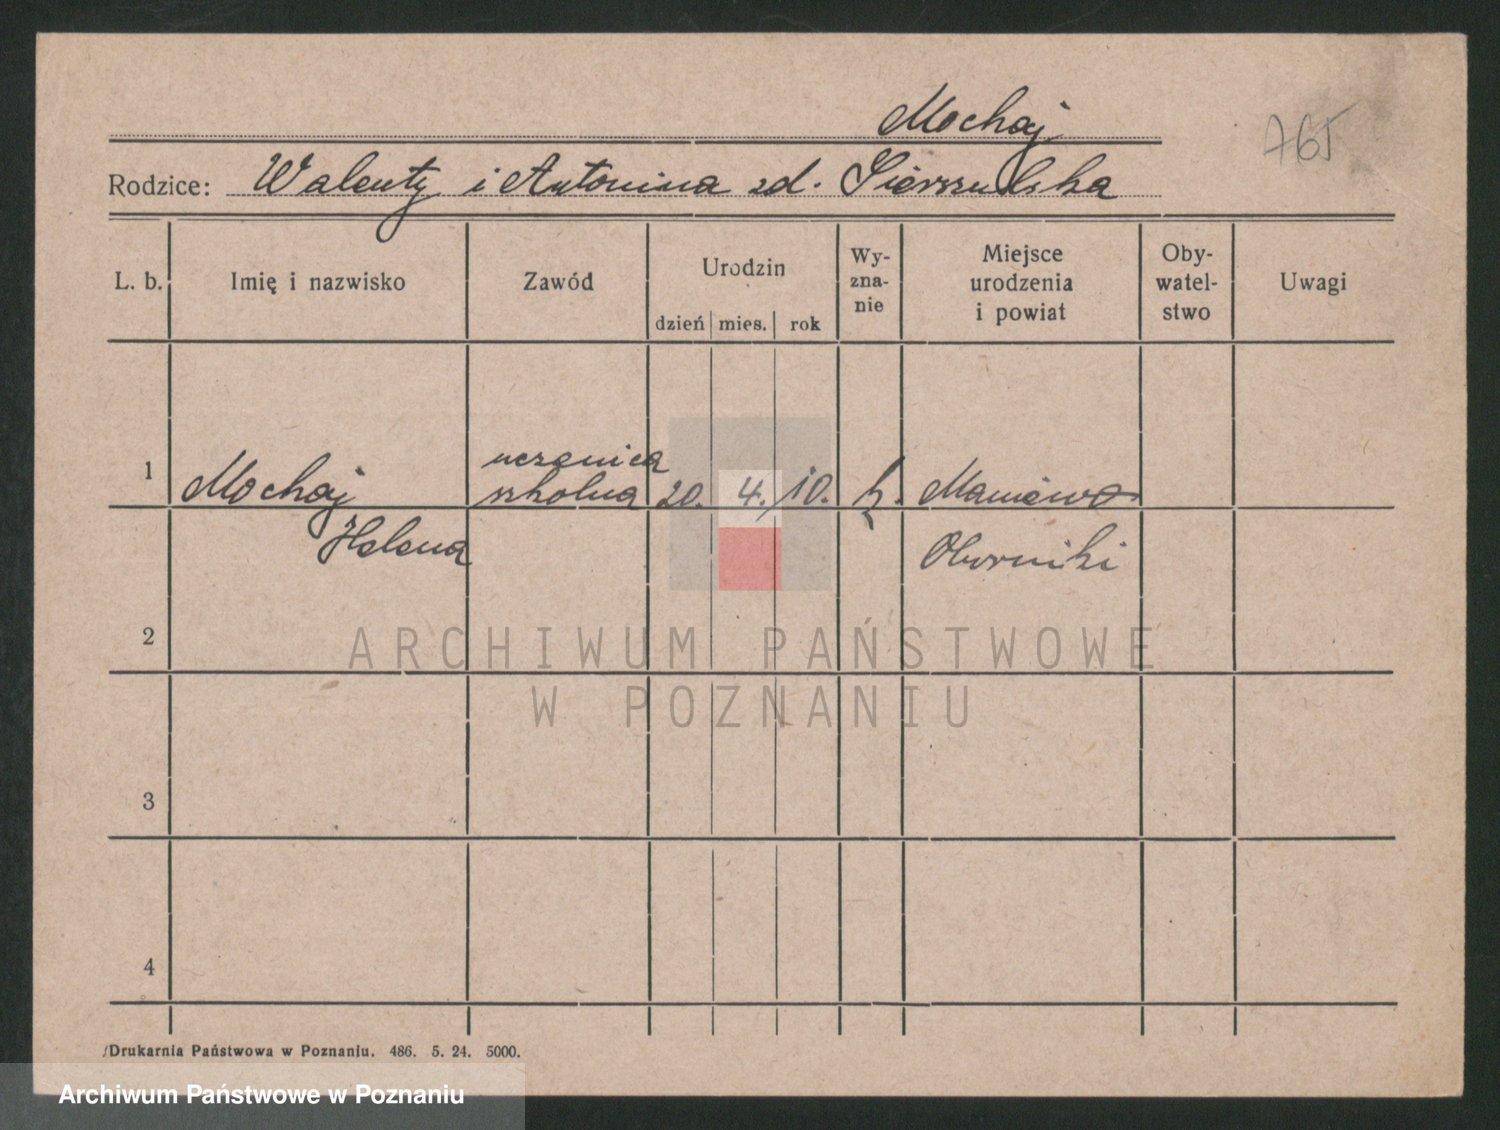 Mochaj
765
Rodzice: Walenty i Antonina zd. Sierszulska
L. b. Imię i nazwisko Zawód Urodzin Wy-
zna-
nie Miejsce
urodzenia
i powiat Oby-
watel-
stwo Uwagi
dzień mies. rok
1 Mochaj uczenica
szkolna 20. 4. 10. k. Maniewo
Helena Oborniki
2
3
4
ARCHIWUM PAŃSTWOWE
W POZNANIU
Drukarnia Państwowa w Poznaniu. 486. 5. 24. 5000.
Archiwum Państwowe w Poznaniu